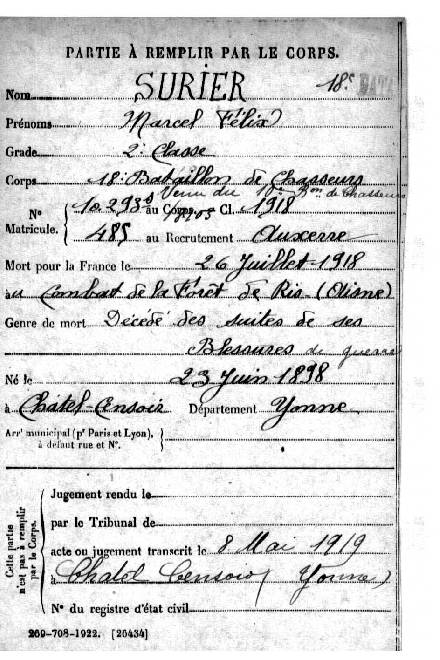 PARTIE À REMPLIR PAR LE CORPS.
Nom SURIER 18e BATA
Prénoms Marcel Félix
Grade 2e Classe
Corps 18e Bataillon de Chasseurs
Venu du Bon de Chasseurs
N° Matricule. { 10.293 au Corps. Cl. 1918
485 au Recrutement Auxerre
Mort pour la France le 26 Juillet 1918
au Combat de la Forêt de Ris (Aisne)
Genre de mort Décédé des suites de ses
Blessures de guerre
Né le 23 Juin 1898
à Châtel Censoir Département Yonne
Arrt municipal (pr Paris et Lyon), à défaut rue et N°. }
Cette partie n'est pas à remplir par le Corps. {
Jugement rendu le
par le Tribunal de
acte ou jugement transcrit le 8 Mai 1919
à Chatel Censoir (Yonne)
N° du registre d'état civil
269-708-1922. [26434]